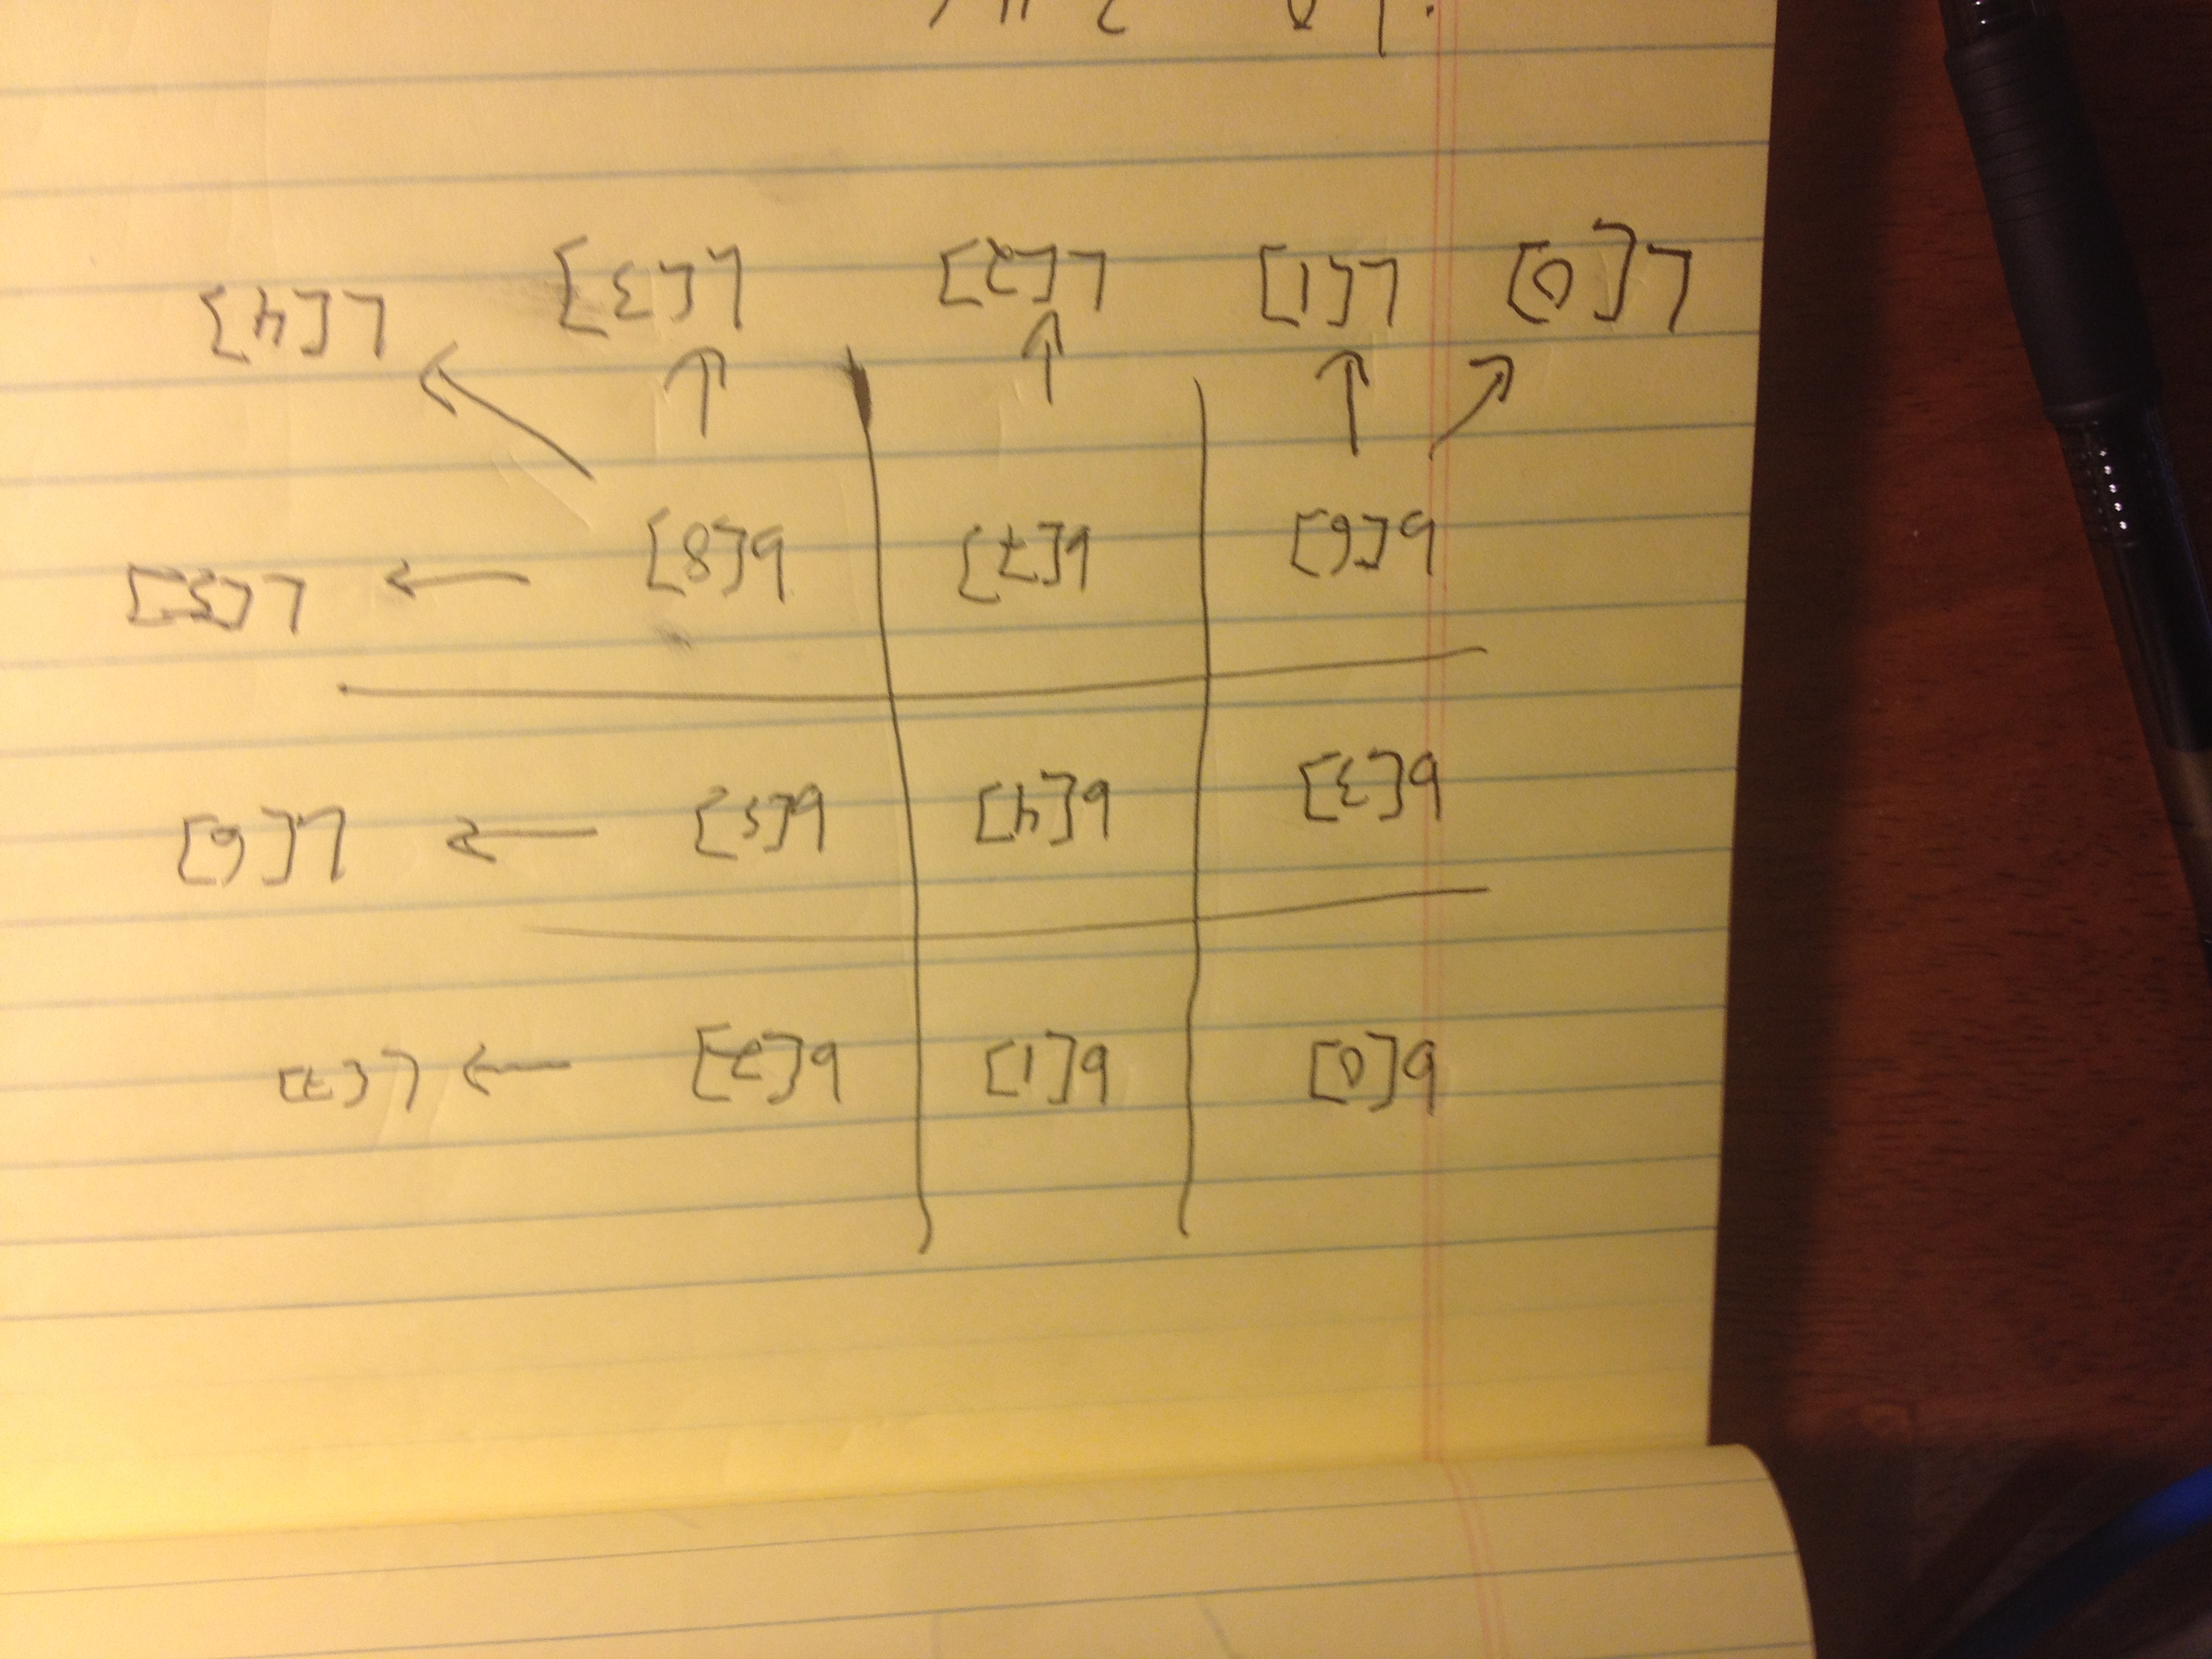 b[0] b[1] b[2] → L[7]
b[3] b[4] b[5] → L[6]
b[6] b[7] b[8] → L[5]
L[0] L[1] L[2] L[3] L[4]